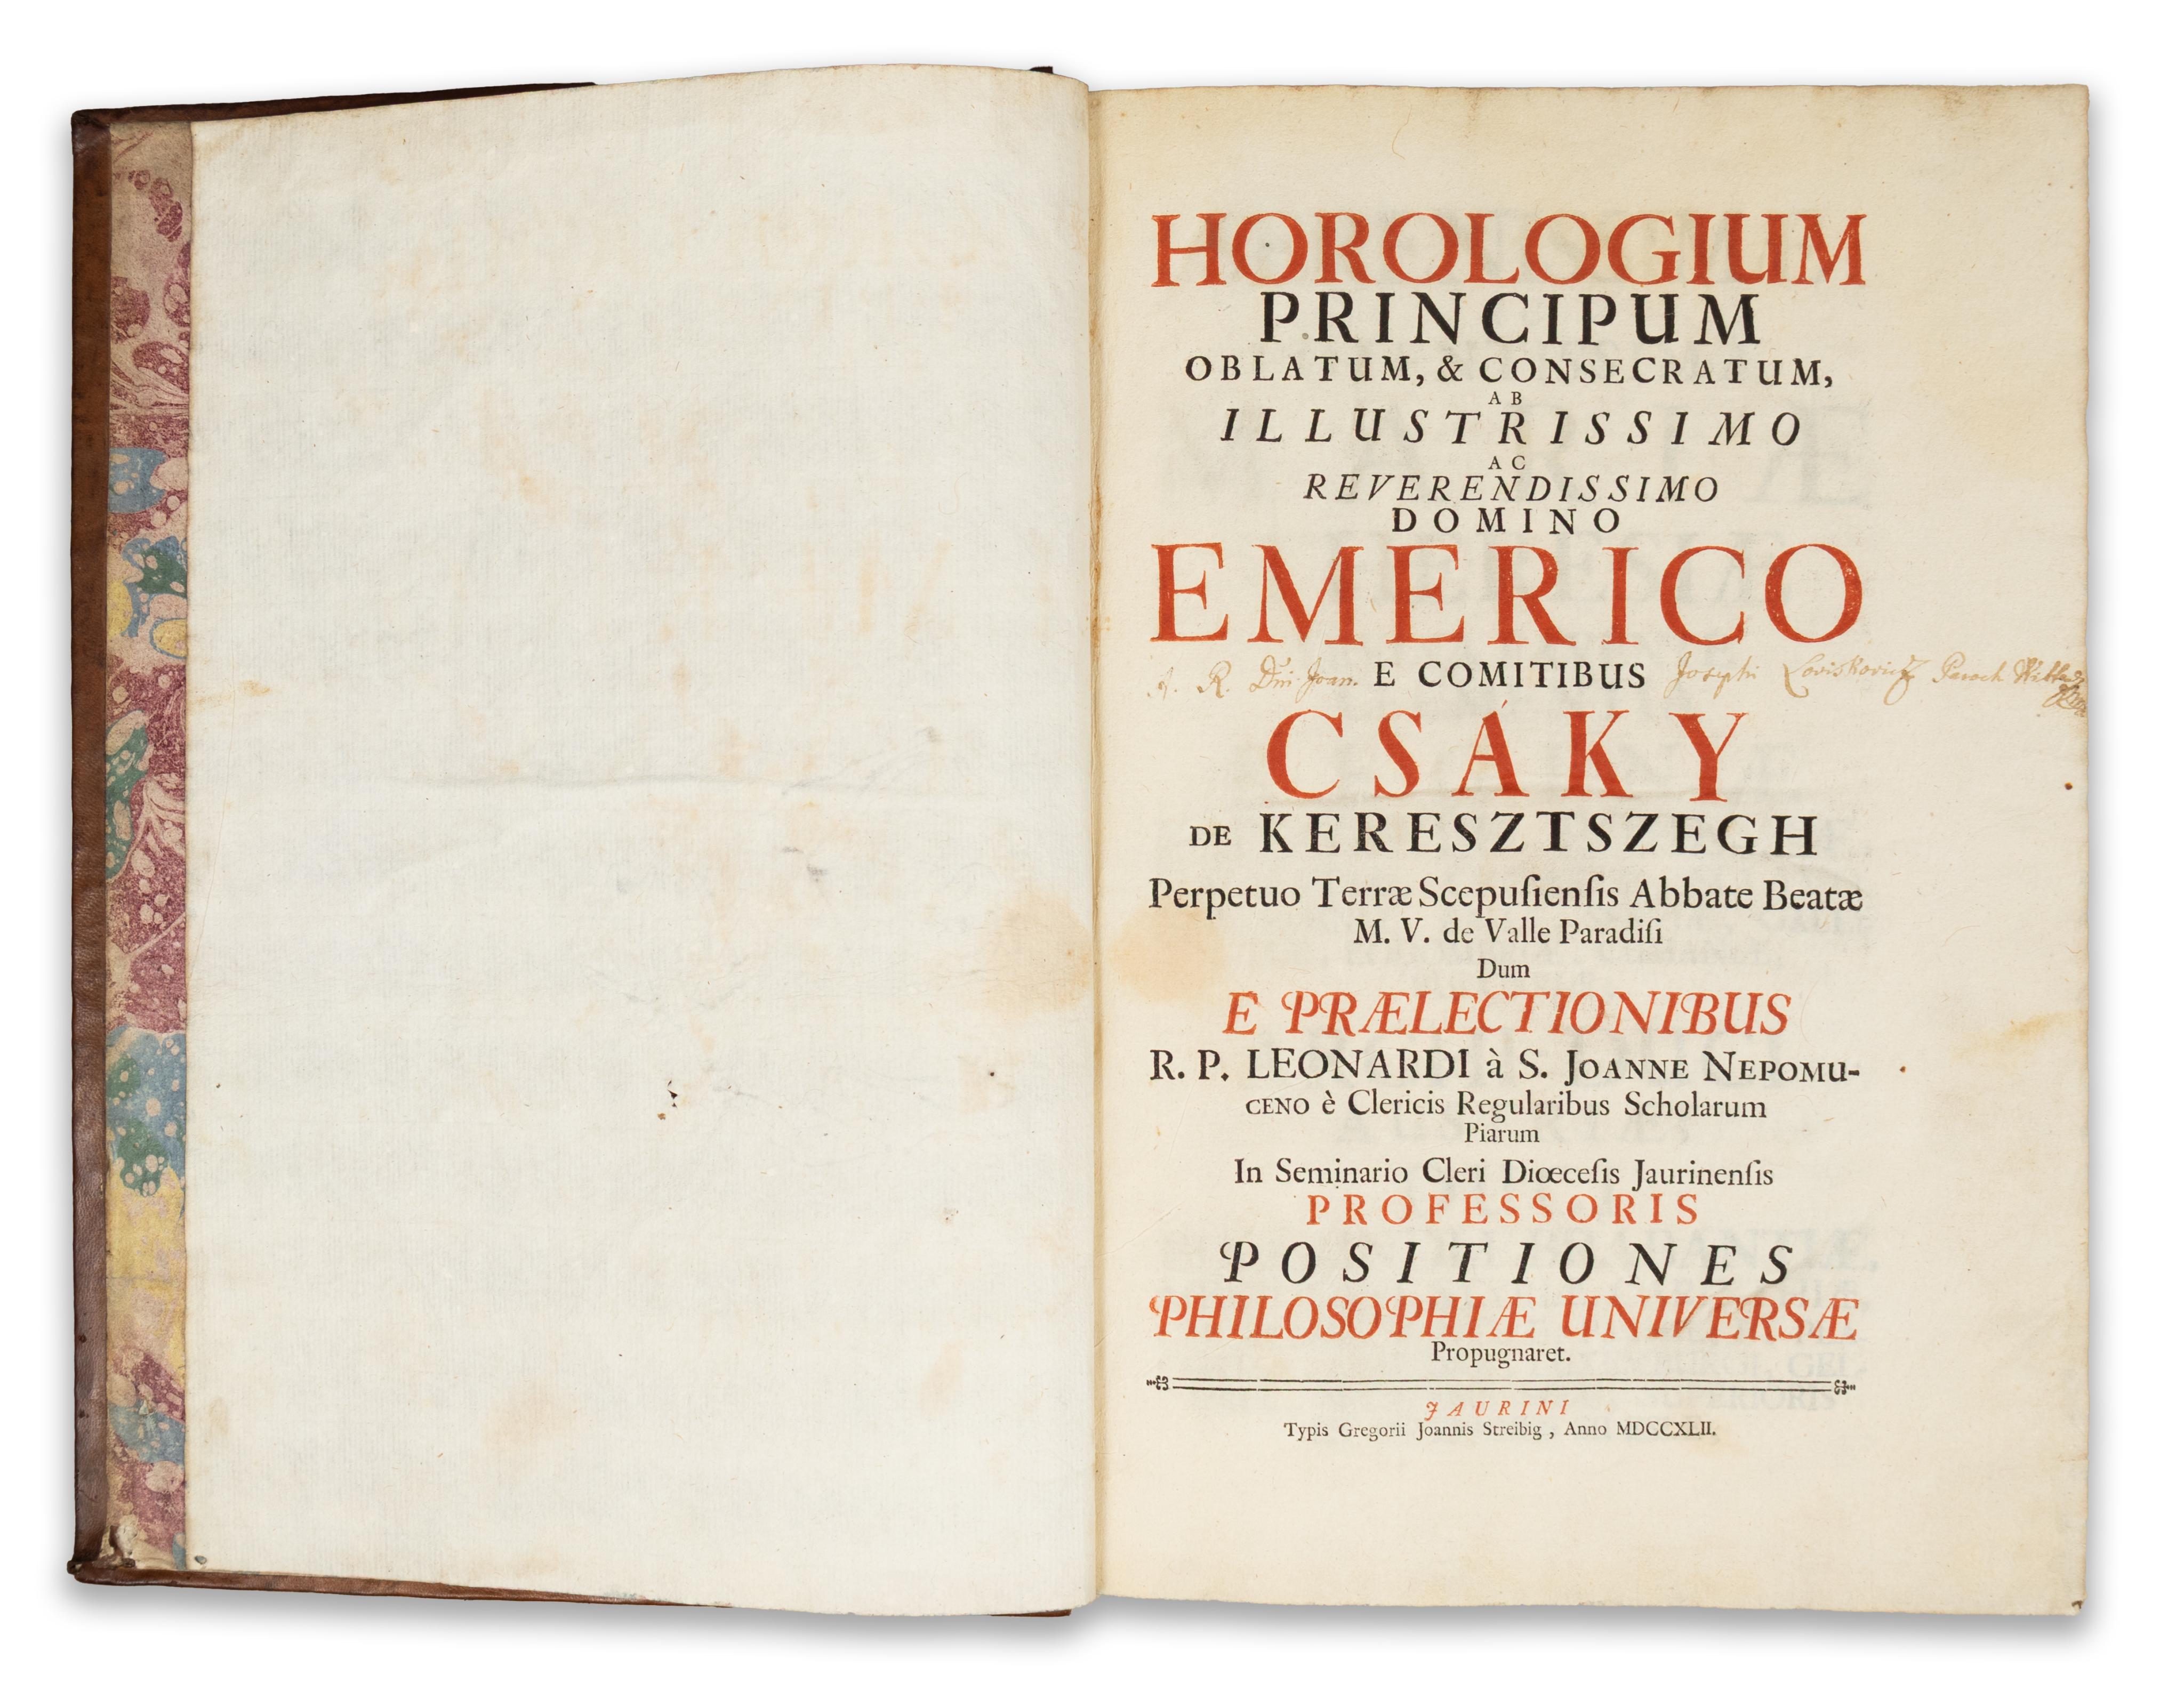 HOROLOGIUM
PRINCIPUM
OBLATUM, & CONSECRATUM,
AB
ILLUSTRISSIMO
AC
REVERENDISSIMO
DOMINO
EMERICO
R. Dni Joan. E COMITIBUS Josephi Paroch
CSÁKY
DE KERESZTSZEGH
Perpetuo Terræ Scepuſienſis Abbate Beatæ
M. V. de Valle Paradiſi
Dum
E PRÆLECTIONIBUS
R. P. LEONARDI à S. JOANNE NEPOMU-
CENO è Clericis Regularibus Scholarum
Piarum
In Seminario Cleri Diœceſis Jaurinenſis
PROFESSORIS
POSITIONES
PHILOSOPHIÆ UNIVERSÆ
Propugnaret.
JAURINI
Typis Gregorii Joannis Streibig, Anno MDCCXLII.